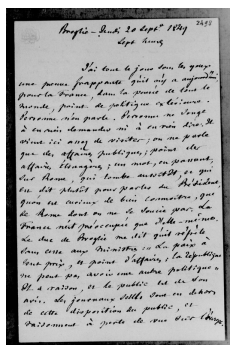 2498
Broglie – Jeudi 20 Septbre 1849
Sept heures
J'ai tout le jour sous les yeux
une preuve frappante qu'il n'y a aujourd'hui
pour la France, dans la pensée de tout le
monde, point de politique extérieure.
Personne n'en parle. Personne ne songe
à en rien demander ni à en rien dire. Il
vient ici assez de visites; on ne parle
que des affaires publiques; point des
affaires étrangères; un mot, en passant,
sur Rome, qui tombe aussitôt, et qui
est dit plutôt pour parler du Président,
qu'on est curieux de bien connaître, que
de Rome dont on ne se soucie pas. La
France n'est préoccupée que d'elle-même.
Le duc de Broglie me dit qu'il répète
sans cesse aux Ministres: "La paix à
tout prix, et point d'affaires, la République
ne peut pas avoir une autre politique."
Il a raison, et le public est de son
avis. Les journaux seuls sont en dehors
de cette disposition du public, et
raisonnent à perte de vue sur l'Europe